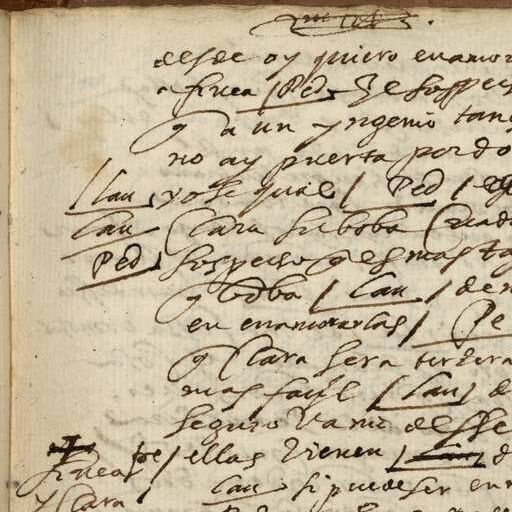 desde oy quiero enamor
a finea / Ped. He sospec
q̃ a un yngenio tan
no ay puerta por do
/ Lau yo se qual / Ped /
Lau Clara su boba criad
Ped sospecho q̃ es mas ta
q̃ boba / Lau / de
en enamorarlas / Pe
q̃ Clara sera tercera
mas façil / Lau / d
seguro Vamos desse
finea / ellas vienen / Lau d
y Clara Lau si puede ser en